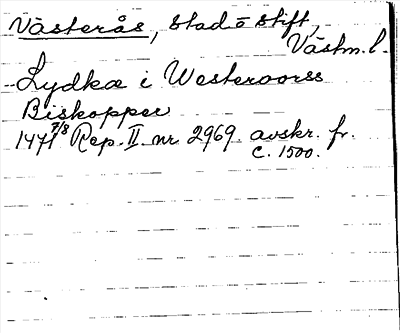 Västerås, Stad o Stift,
Västm. l.
Lydkæ i Westeroorss
Biskopper
1471 7/8 Rep. II. nr 2969. avskr. fr.
c. 1500.